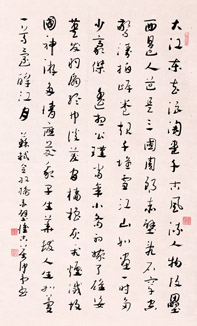 大江東去浪淘盡千古風流人物故壘
西邊人道是三國周郎赤壁亂石穿空
驚濤拍岸捲起千堆雪江山如畫一時多
少豪傑遙想公瑾當年小喬初嫁了雄姿
英發羽扇綸巾談笑間檣櫓灰飛煙滅故
國神游多情應笑我早生華髮人生如夢
一尊還酹江月 蘇軾念奴嬌赤壁懷古